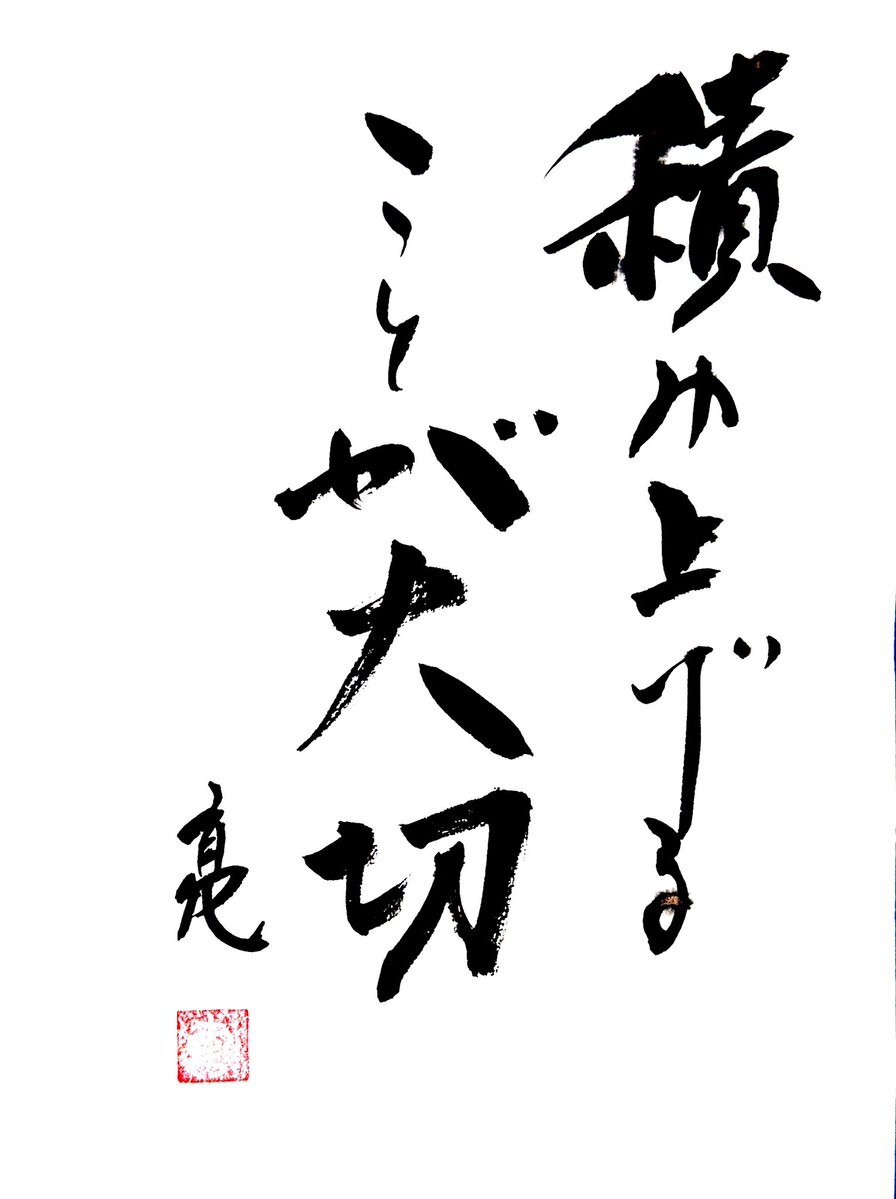 積み上げる
ことが大切
亮